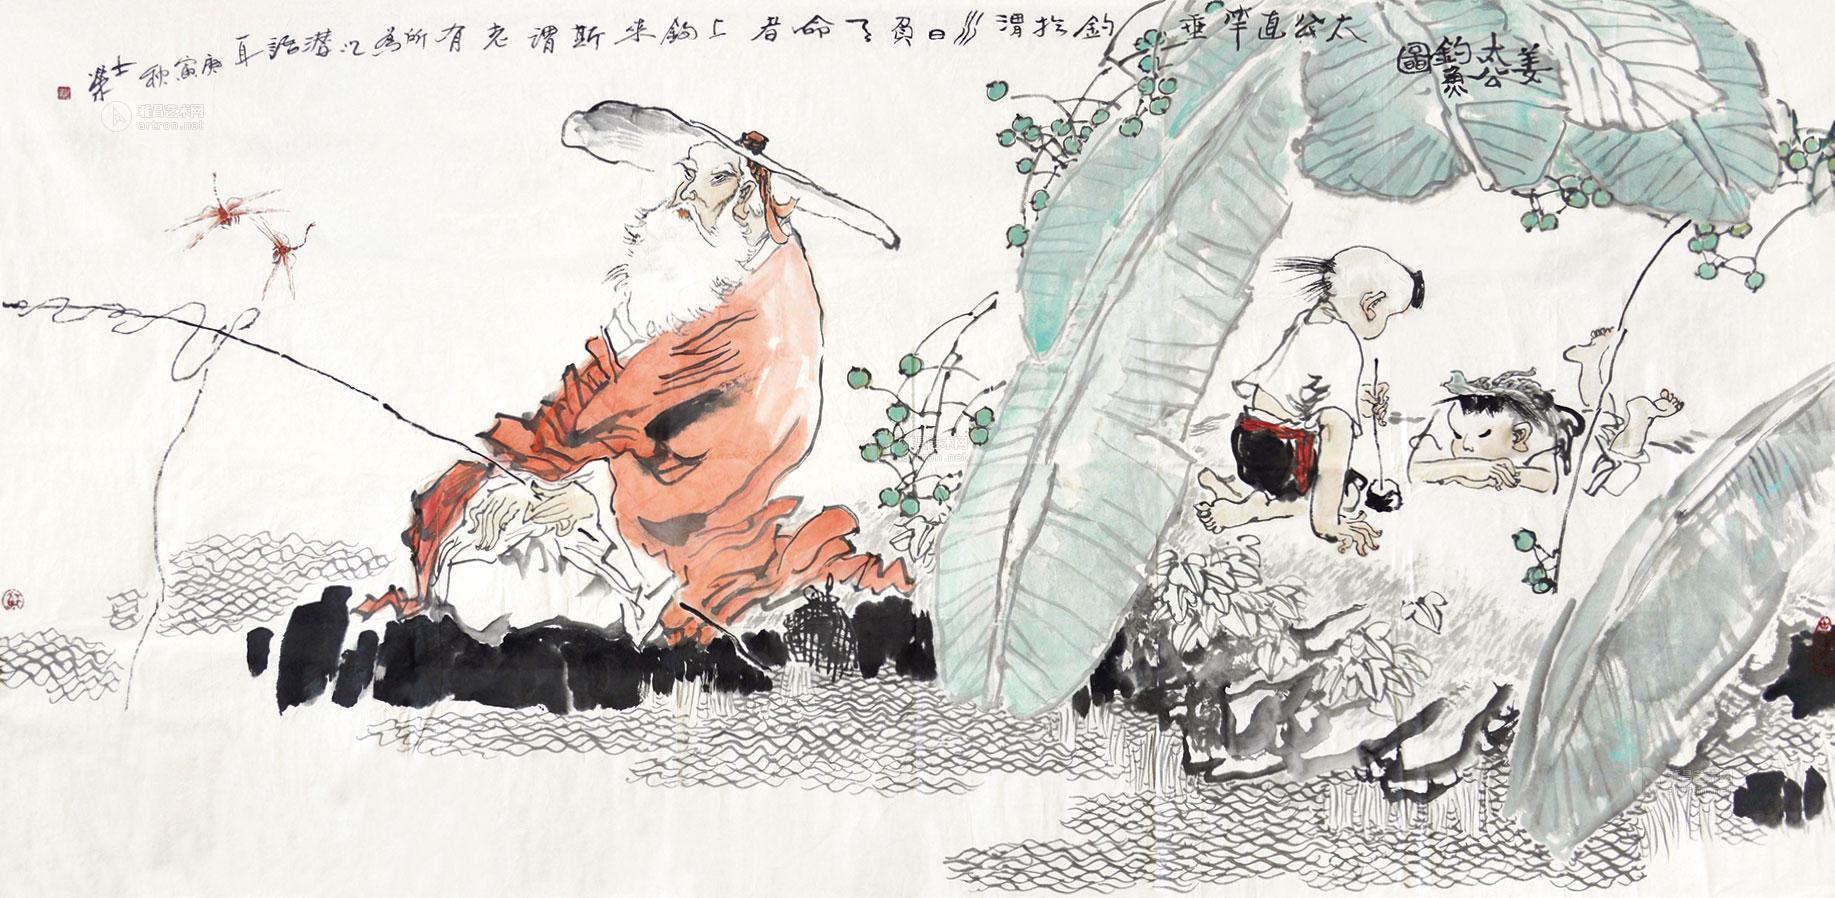 姜太公釣魚圖
太公直竿垂釣於渭川曰負了命者上鈎来斯謂老有所為以潜話耳
庚寅秋士
雅昌艺术网
artron.net